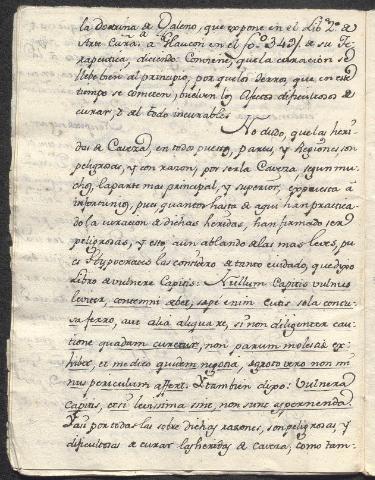 la Doctrina de Galeno, que expone en el Lib. 2º. de
Arte Curat. a Glaucon en el fo. 343. de su Te-
rapeutica, diciendo Conviene, que la curacion se
lleve bien al principio, por que los Yerros, que en este
tiempo se cometen, buelven los Afectos dificultosos de
curar, ò del todo incurables.
No dudo, que las heri-
das de Caveza, en todo puesto, partes, y Regiones son
peligrosas, y con razon, por ser la Caveza, segun mu-
chos, la parte mas principal, y superior, expuesta à
infortunios, pues quantos hasta de aqui han practica-
do la curacion de dichas heridas, han firmado ser
peligrosas, y esto, aun ablando de las mas leves, pu-
es Hypocrates las considerò de tanto cuidado, que dijo
Libro de vulnere Capitis: Nullum Capitis vulnus
leviter, contemni debet, sæpe enim cutis sola contu-
sa ferro, aut alia aliqua re, si non diligenter cau-
tione quadam curetur, non parum molestiæ ex-
hibet, et medico quidem negotia, ægroto vero non mi-
nus periculum affert. Y tambien dijo: Vulnera
Capitis, etsi levissima sint, non sunt aspernenda.
Y asi por todas las sobre dichas razones, son peligrosas, y
dificultosas de curar las heridas de Caveza, como tam-